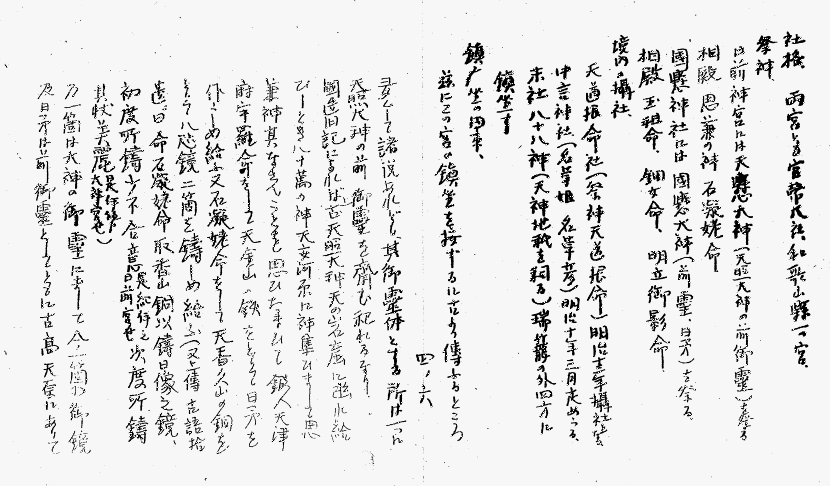 社格、両宮とも官幣大社、和歌山縣一の宮、
祭神、
日前神宮には天懸大神(天照大神の前御霊)を奉る
相殿 思兼の神 石凝姥命
國懸神社には國懸大神(前霊、日矛)を祭る
相殿 玉祖命、鈿女命、明立御影命
境内の攝社、
天道根命社(祭神天道根命)明治十年攝社と
中言神社(名草姫 名草彦)明治十年三月定めらる
末社八十八神(天神地祇を祠る)瑞籬の外四方に
鎮坐す
鎮坐の由来、
茲にこの宮の鎮坐を按するに古より傳ふるところ
四ノ六
諸説あれども其御霊体とする所は一つに
天照大神の前御霊を齋む祀れるなり
國造旧記によれば古天照大神天の岩窟に幽れ給
ひしとき八十萬の神天安河原に神集ひまして思
兼神其なさんことをも思ひたまひて鍛人天津
麻宇羅命をして天金山の鉄をとりて日矛を
作らしめ給ふ又石凝姥命をして天香久山の銅を
とり八咫鏡二箇を鋳しめ給ふ(又傳 古語拾
遺曰命石凝姥命取香山銅以鋳日像之鏡、
初度所鋳少不合意是紀伊国日前宮也、次度所鋳
其状美麗是伊勢大神宮也)
一箇は天神の御霊にまして今一箇の御鏡
及日矛は前御霊としてともに古高天原にありて